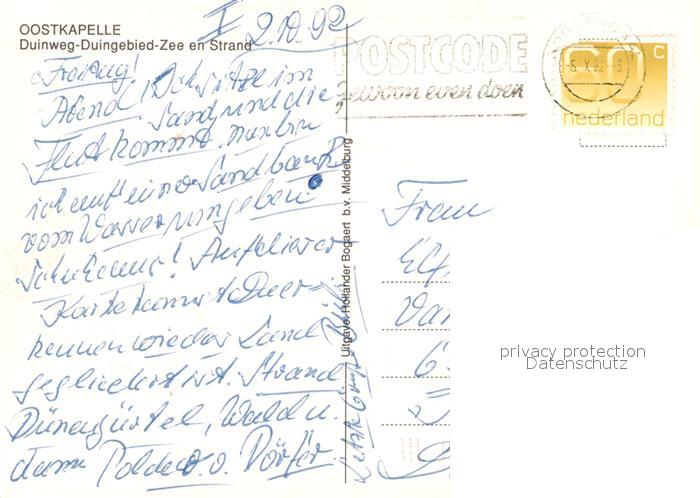 OOSTKAPELLE
Duinweg-Duingebied-Zee en Strand
I 2.10.92
Freitag!
Ich sitze im
Abend Sand und die
Flut kommt. nun bin
ich auf einer Sandbank
vom Wasser umgeben
Auf dieser
Karte kannst Du er-
kennen wie das Land
gegliedert ist. Strand
Dünengürtel, Wald u.
dann Polder u. Dörfer.
Uitgave: Hollander Bogaert b.v. Middelburg
POSTCODE
gewoon even doen
-6.X.92
60 c
nederland
Frau
privacy protection
Datenschutz